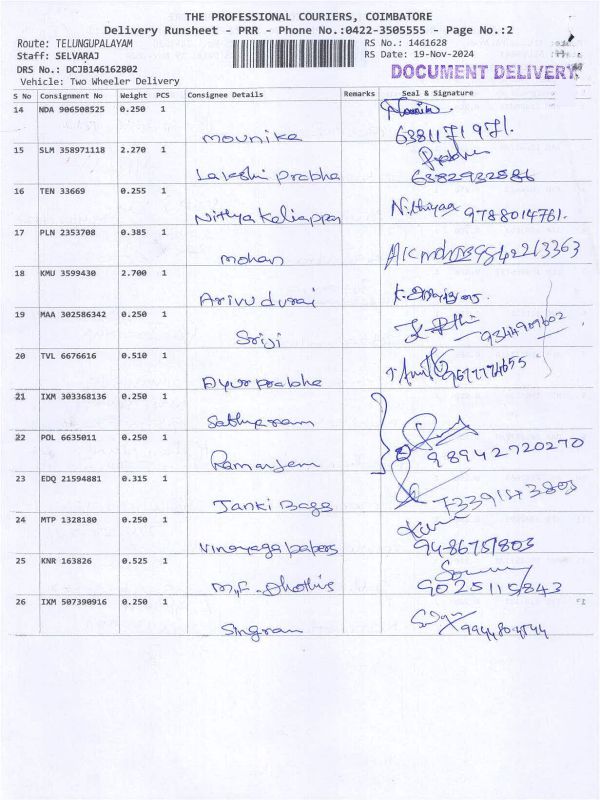 THE PROFESSIONAL COURIERS, COIMBATORE
Delivery Runsheet - PRR - Phone No.:0422-3505555 - Page No.:2
Route: TELUNGUPALAYAM RS No.: 1461628
Staff: SELVARAJ RS Date: 19-Nov-2024
DRS No.: DCJB146162802 DOCUMENT DELIVERY
Vehicle: Two Wheeler Delivery
S No Consignment No Weight PCS Consignee Details Remarks Seal & Signature
14 NDA 906508525 0.250 1
mounika 6381171971.
15 SLM 358971118 2.270 1 Prabha
Lakshi prabha 6382932586
16 TEN 33669 0.255 1
Nithya Kaliappan Nithiyaa 9788014761.
17 PLN 2353708 0.385 1
mohan 9842213363
18 KMU 3599430 2.700 1
Arivudurai
19 MAA 302586342 0.250 1
Sriji 9344909602
20 TVL 6676616 0.510 1
Ayurprabha 9677774655
21 IXM 303368136 0.250 1
Sathyaram
22 POL 6635011 0.250 1 98942720270
Ramanjem
23 EDQ 21594881 0.315 1
Janki Bags
24 MTP 1328180 0.250 1
Vinayaga papers 9486751803
25 KNR 163826 0.525 1
M.F. Dhothis 9025115843
26 IXM 507390916 0.250 1
Singram